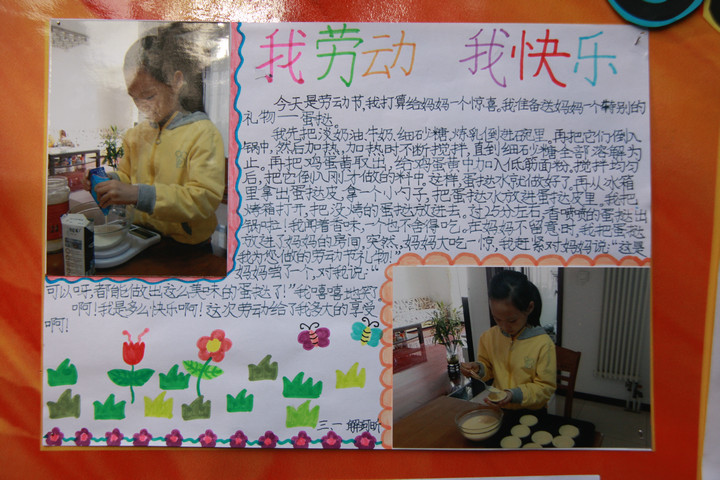 我劳动 我快乐
今天是劳动节,我打算给妈妈一个惊喜。我准备送妈妈一个特别的
礼物——蛋挞。
我先把淡奶油、牛奶、细砂糖、炼乳倒进碗里。再把它们倒入
锅中,然后加热,加热时不断搅拌,直到细砂糖全部溶解为
止。再把鸡蛋黄取出,给鸡蛋黄中加入低筋面粉,搅拌均匀
后,把它倒入刚才做的料中。这样,蛋挞水就做好了。再从冰箱
里拿出蛋挞皮,拿一个小勺子,把蛋挞水放进蛋挞皮里。我把
烤箱打开,把没烤的蛋挞放进去。过25分左右,香喷喷的蛋挞出
锅啦!我闻着香味,一个也不舍得吃。在妈妈不留意时,我把蛋挞
放进了妈妈的房间,突然,妈妈大吃一惊,我赶紧对妈妈说:“这是
我为您做的劳动节礼物!”
妈妈笑了一个,对我说:“
可以呀,都能做出这么美味的蛋挞了!”我嘻嘻地笑了
啊!我是多么快乐啊!这次劳动给了我多大的享受
啊!
三.一 解